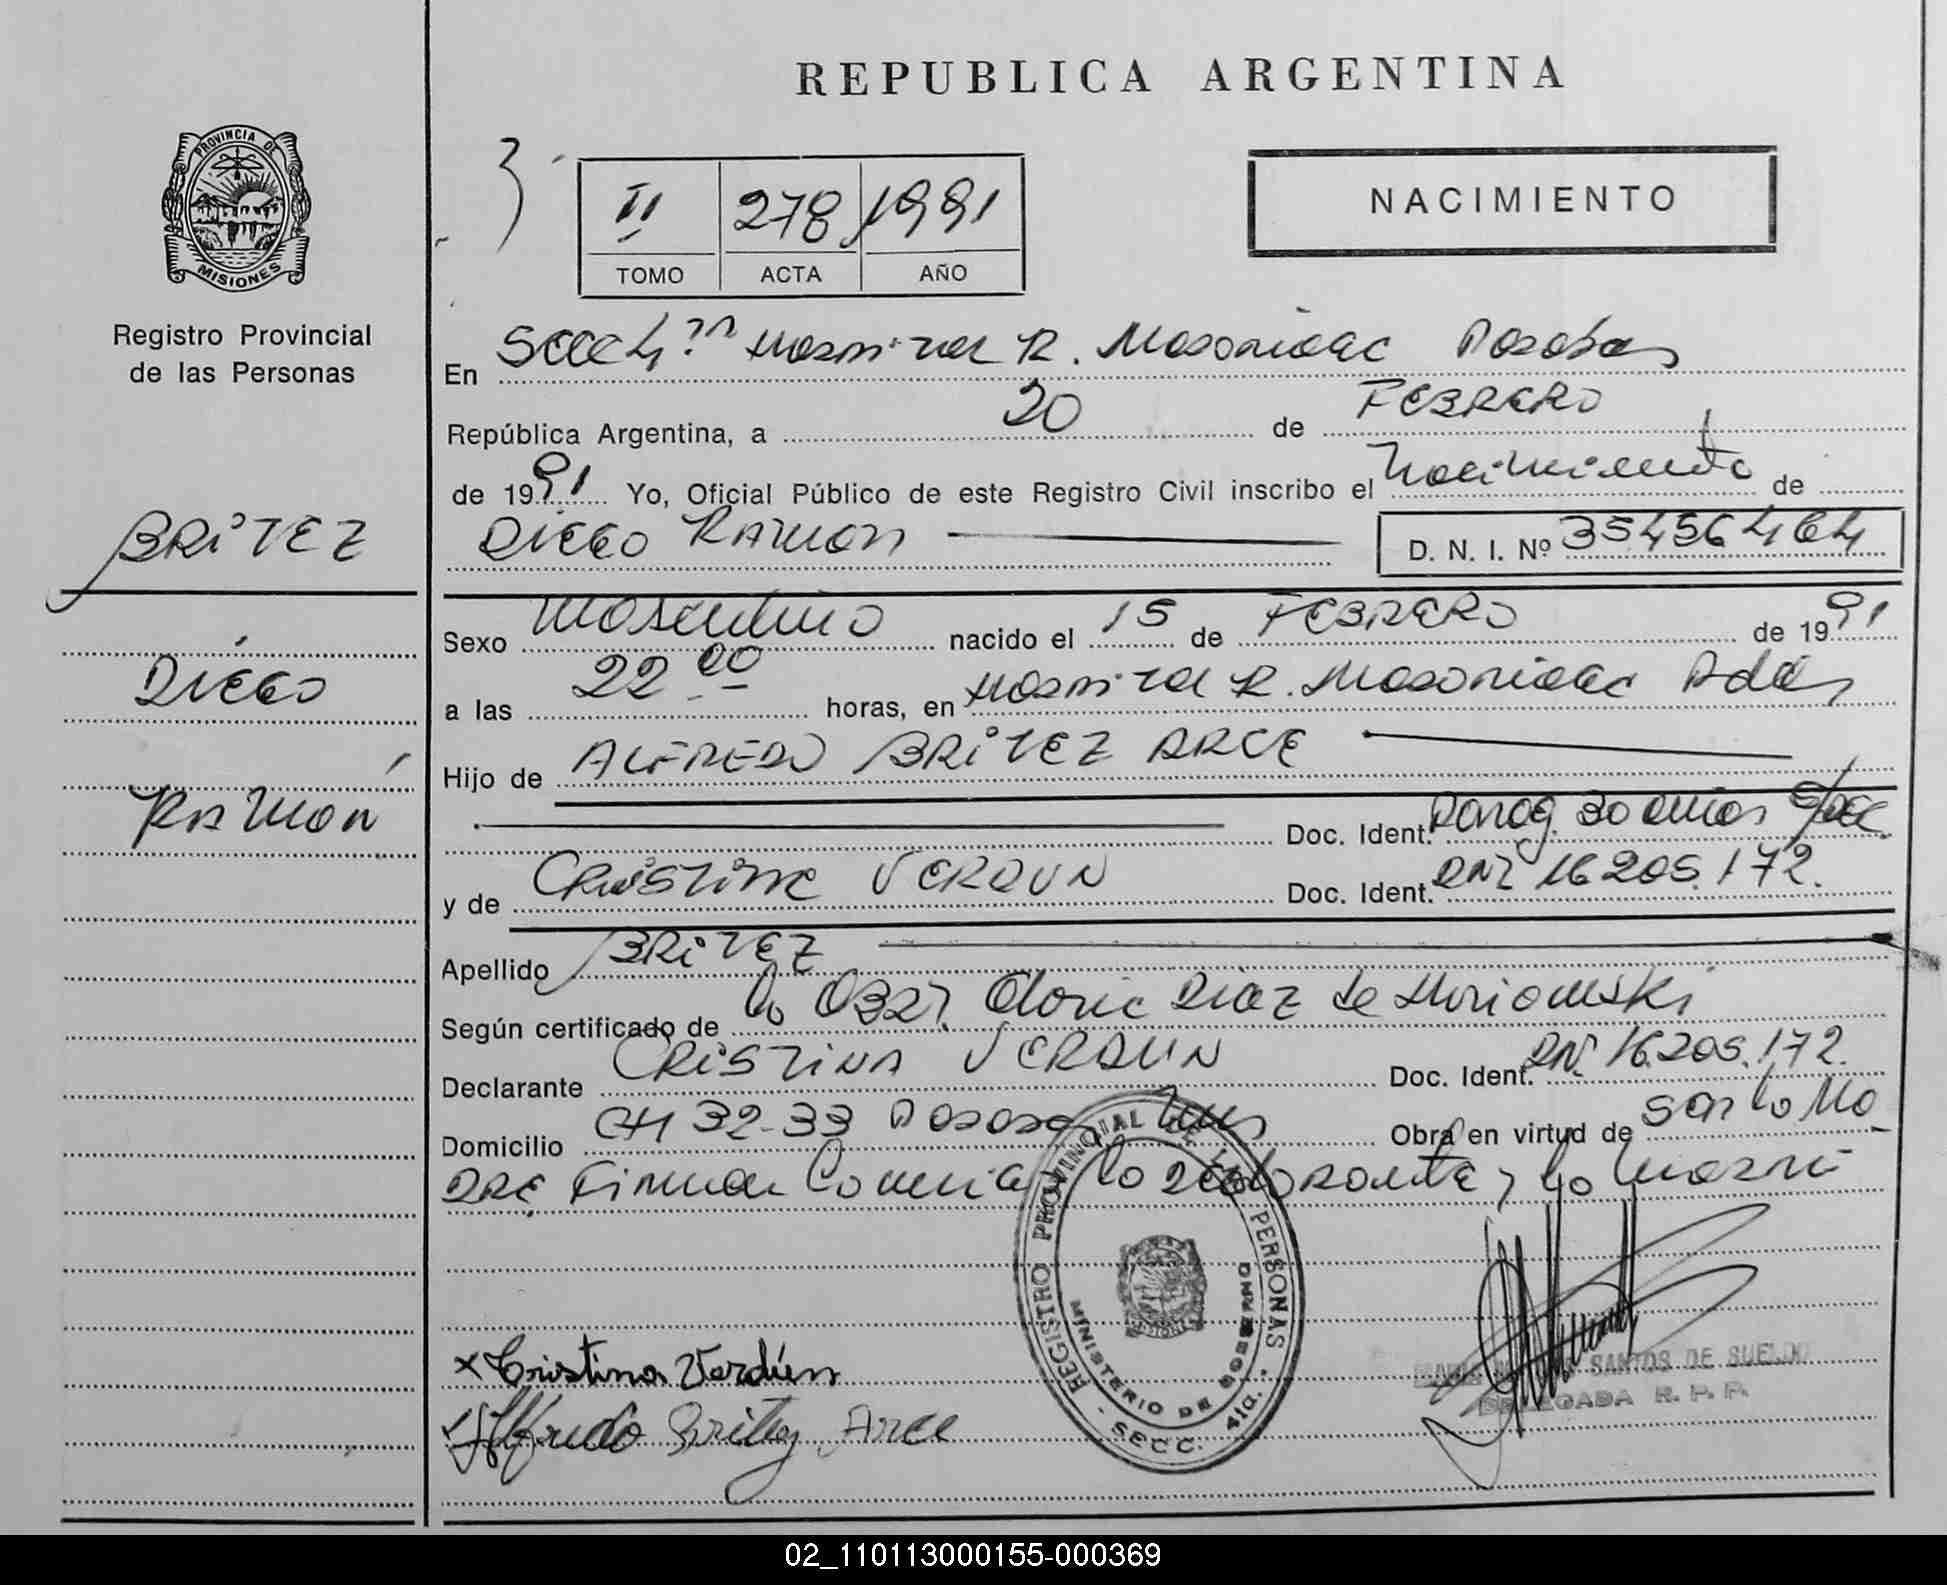 REPUBLICA ARGENTINA
PROVINCIA DE
MISIONES
Registro Provincial
de las Personas
3
II 278 1991
TOMO ACTA AÑO
NACIMIENTO
En Secc 4ª Hospital R. Madariaga Posadas
República Argentina, a 20 de FEBRERO
de 1991 Yo, Oficial Público de este Registro Civil inscribo el Nacimiento de
DIEGO RAMON D. N. I. Nº 35456464
BRITEZ
DIEGO
RAMON
Sexo Masculino nacido el 15 de FEBRERO de 1991
a las 22 00 horas, en Hospital R. Madariaga Pdas
Hijo de ALFREDO BRITEZ ARCE
Doc. Ident. Parag. 30 años
y de CRISTINA VERDUN Doc. Ident. DNI 16.205.172.
Apellido BRITEZ
Según certificado de la Obst. Gloria Diaz de
Declarante CRISTINA VERDUN Doc. Ident. DNI. 16.205.172.
Domicilio CH 32-33 Posadas Mnes Obra en virtud de ser la Ma
DRE Firman la declarante y la
x Cristina Verdún
Alfredo Britez Arce
REGISTRO PROVINCIAL DE LAS PERSONAS
MINISTERIO DE GOBIERNO
SECC. 4ta.
SANTOS DE SUELDO
DELEGADA R. P. P.
02_110113000155-000369